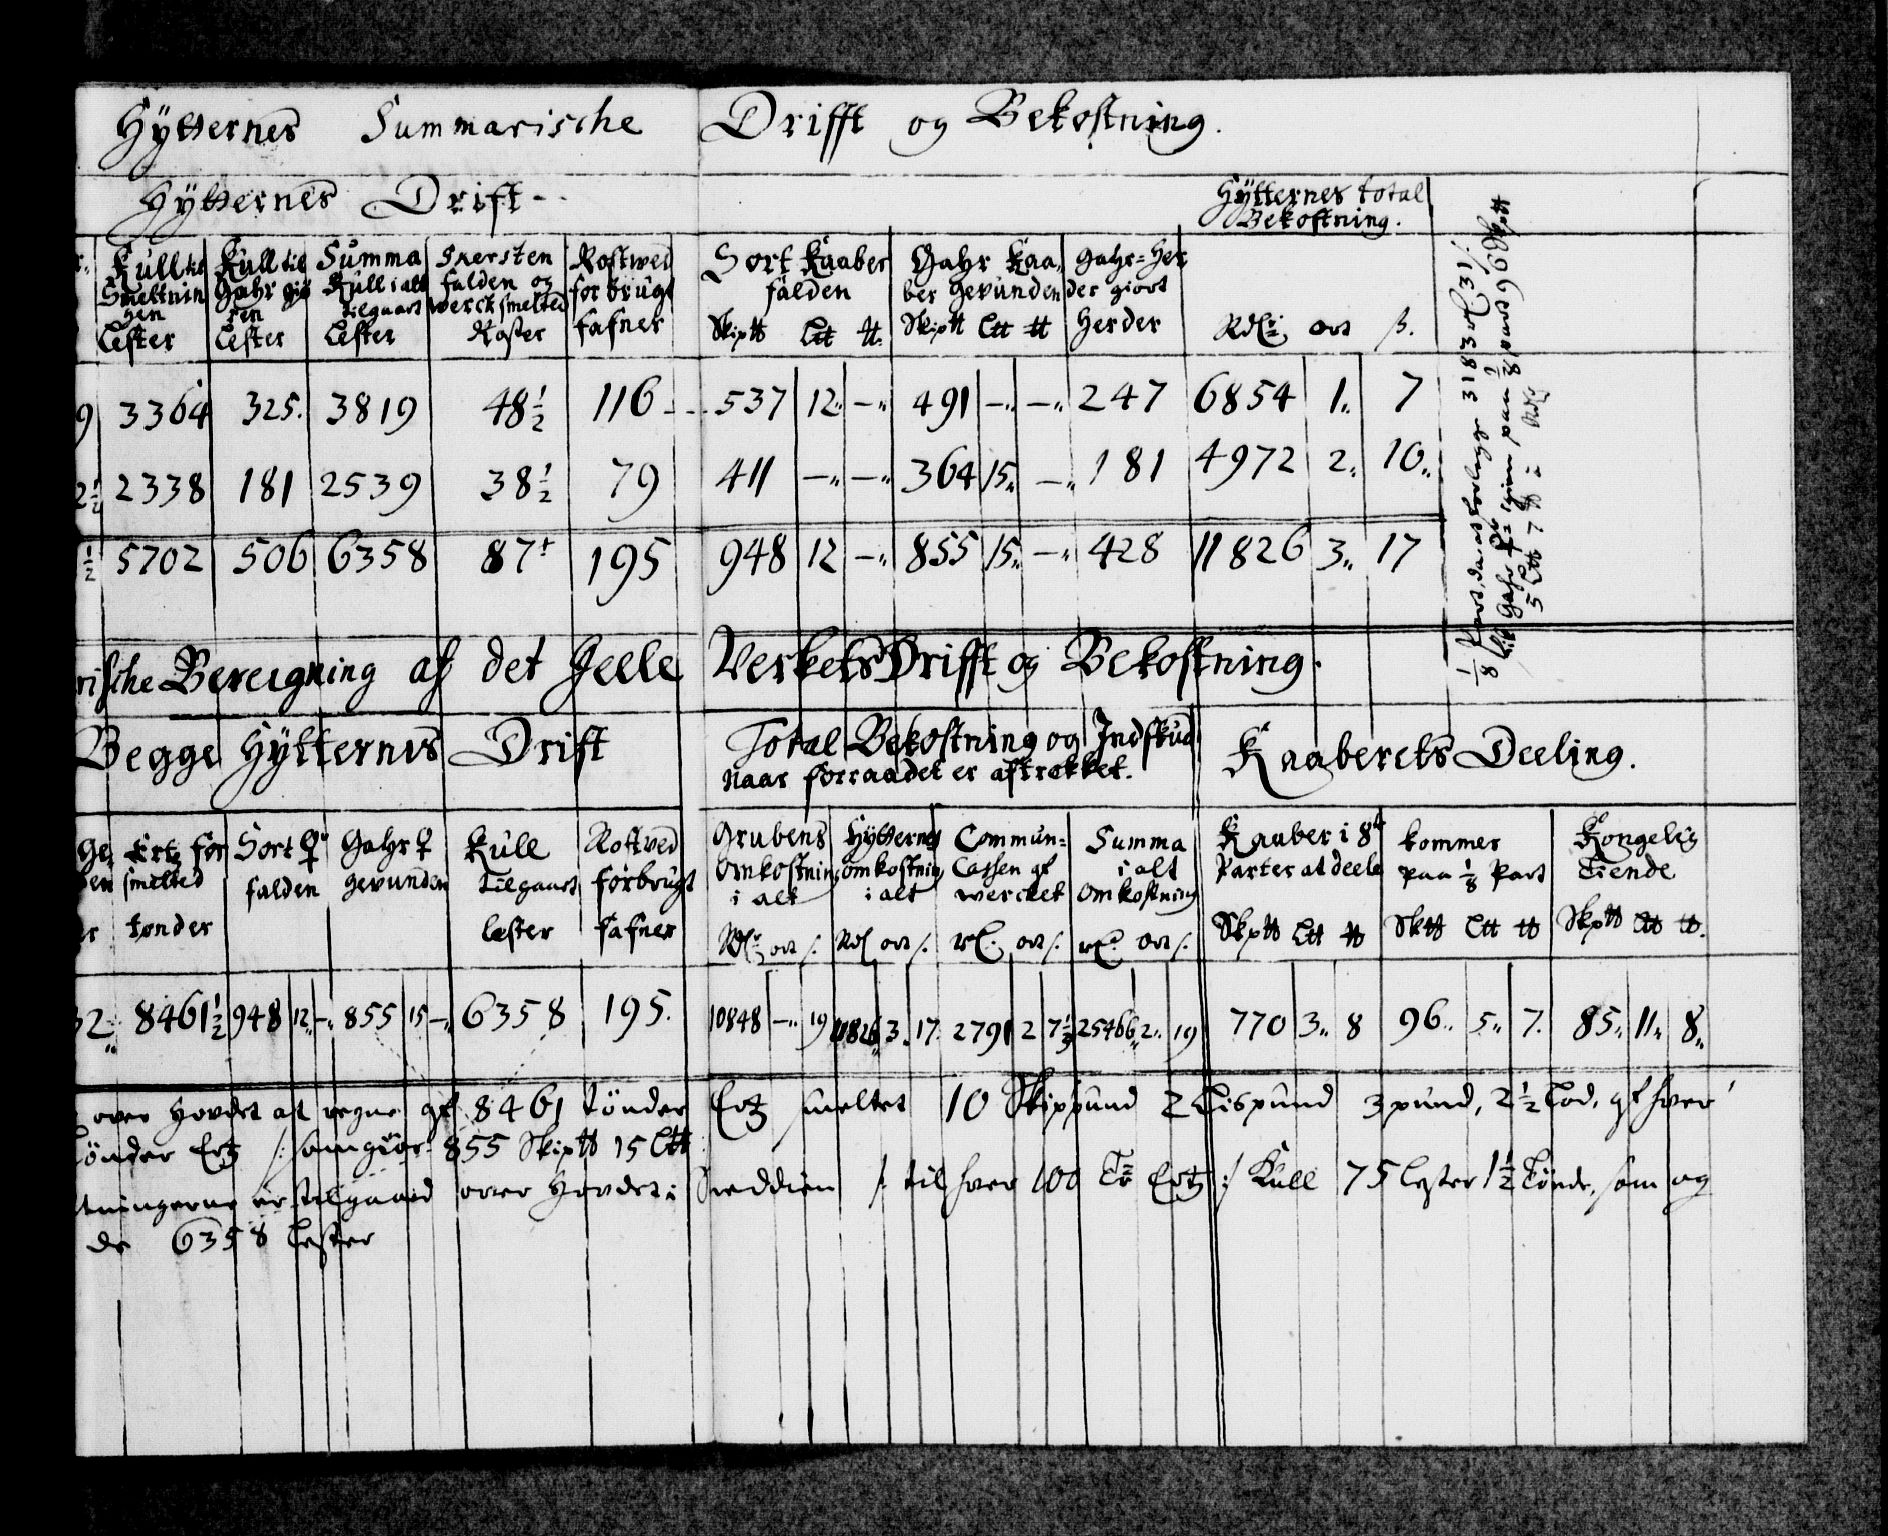 Hÿtternes Summarische Drifft og Bekostning.
Hÿtternes Drift
Hÿtternes total
Bekostning.
Kull til Smeltningen Lester
Kull til Gahr giøren Lester
Summa Kull i alt tilgaaet Lester
Skersten falden og Werck smelted Roster
Rostwed forbrugt fafner
Sort Kaaber falden Skip℔ L℔ ℔.
Gahr Kaaber gevunden Skip℔ L℔ ℔
Gahr-Herder giort Herder
Rdlr. ort β.
9 3364 325. 3819 48½ 116 537 12.. —.. 491 —.. —.. 247 6854 1.. 7
2½ 2338 181 2539 38½ 79 411 —.. —.. 364 15.. —.. 181 4972 2.. 10..
½ 5702 506 6358 87 195 948 12 —.. 855 15.. —.. 428 11826 3.. 17
rische Bereigning af det Heele Verkets Drifft og Bekostning.
Begge Hÿtternes Drift
Total Bekostning og Indskud
Naar forraadet er aftrekket.
Kaaberets Deeling.
Ertz for smelted tønder
Sort ♀ falden
Gahr ♀ gevunden
Kull tilgaaet lester
Rostved forbrugt fafner
Grubens Omkostning i alt Rdlr ort β.
Hÿtternes omkostning i alt Rdl ort β.
Commun-Cassen af wercket rd. ort β.
Summa i alt Omkostning rd. ort β.
Kaaber i 8te Parter at deele Skp℔ L℔ ℔
kommer paa ⅛ Part Sk℔ L℔ ℔
Kongelig Tiende Skp℔ L℔ ℔.
32.. 8461½ 948 12.. —.. 855 15 —.. 6358 195. 10848 —.. 19 11826 3. 17. 2791 2 7½ 25466.. 2.. 19 770 3.. 8 96.. 5.. 7. 85.. 11.. 8..
over Hovdet at regne af 8461 tönder Ertz smeltet 10 Skippund 2 Lispund 3 pund, 2½ Lod, af hver
Tönder Ertz /: som giør 855 Skip℔ 15 L℔
er tilgaaed over Hovdet i Kull 75 Lester 1½ Tönde, som og
/: til hver 100 Tr Ertz :/
de 6358 Lester